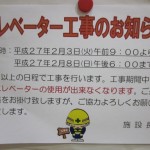 レベーター工事のお知ら
時：平成27年2月3日(火)午前9：00よ
平成27年2月8日(日)午後6：00まで
以上の日程で工事を行います。工事期間中
レベーターの使用が出来なくなります。ご
をお掛け致しますが、ご協力よろしくお願
します。
施設長